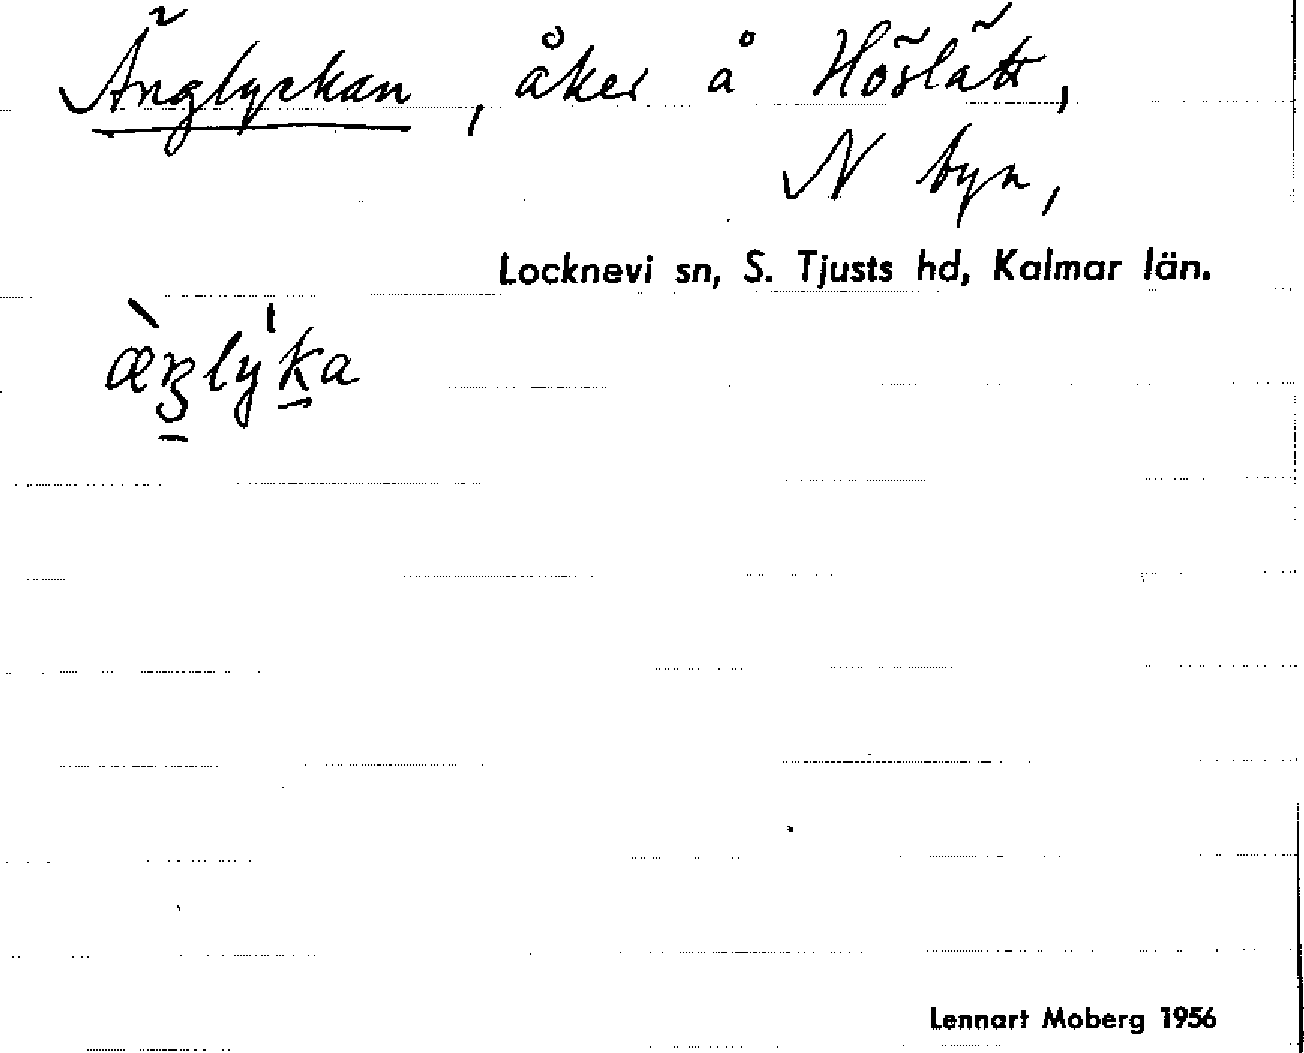 Änglyckan, åker å Höslätt,
N byn,
Locknevi sn, S. Tjusts hd, Kalmar län.
Lennart Moberg 1956